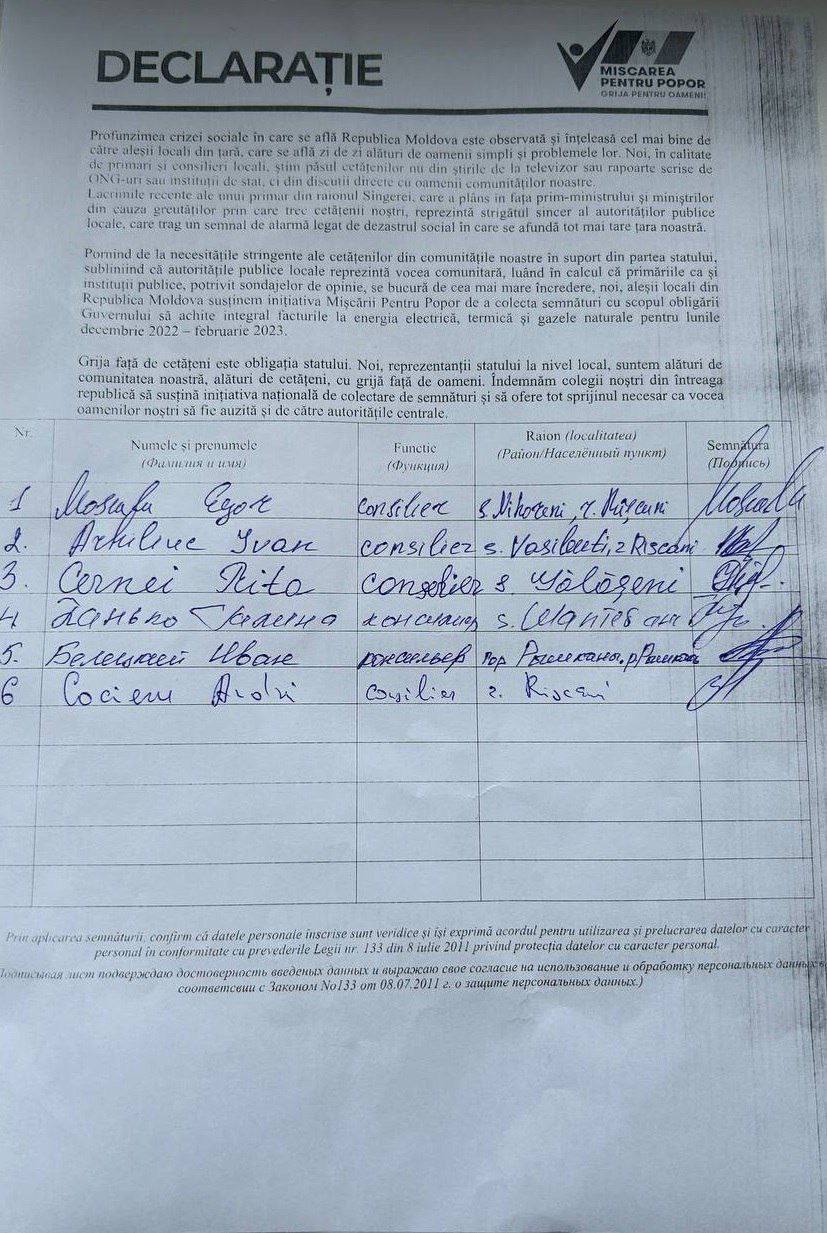 DECLARAȚIE
MIȘCAREA
PENTRU POPOR
GRIJA PENTRU OAMENI!
Profunzimea crizei sociale în care se află Republica Moldova este observată și înțeleasă cel mai bine de
către aleșii locali din țară, care se află zi de zi alături de oamenii simpli și problemele lor. Noi, în calitate
de primari și consilieri locali, știm păsul cetățenilor nu din știrile de la televizor sau rapoarte scrise de
ONG-uri sau instituții de stat, ci din discuții directe cu oamenii comunităților noastre.
Lacrimile recente ale unui primar din raionul Sîngerei, care a plâns în fața prim-ministrului și miniștrilor
din cauza greutăților prin care trec cetățenii noștri, reprezintă strigătul sincer al autorităților publice
locale, care trag un semnal de alarmă legat de dezastrul social în care se afundă tot mai tare țara noastră.
Pornind de la necesitățile stringente ale cetățenilor din comunitățile noastre în suport din partea statului,
subliniind că autoritățile publice locale reprezintă vocea comunitară, luând în calcul că primăriile ca și
instituții publice, potrivit sondajelor de opinie, se bucură de cea mai mare încredere, noi, aleșii locali din
Republica Moldova susținem inițiativa Mișcării Pentru Popor de a colecta semnături cu scopul obligării
Guvernului să achite integral facturile la energia electrică, termică și gazele naturale pentru lunile
decembrie 2022 – februarie 2023.
Grija față de cetățeni este obligația statului. Noi, reprezentanții statului la nivel local, suntem alături de
comunitatea noastră, alături de cetățeni, cu grijă față de oameni. Îndemnăm colegii noștri din întreaga
republică să susțină inițiativa națională de colectare de semnături și să ofere tot sprijinul necesar ca vocea
oamenilor noștri să fie auzită și de către autoritățile centrale.
Nr. Numele și prenumele Funcție Raion (localitatea) Semnătura
(Фамилия и имя) (Функция) (Район/Населённый пункт) (Подпись)
1 Egor consilier s. Nihoreni, r. Rîșcani
2. Ivan consilier s. Vasileuti, r Riscani
3. Cernei Rita s.
4 Данько Галина s.
5. Белецкий Иван гор Рышканы.
6 Andri consilier r. Riscani
Prin aplicarea semnăturii, confirm că datele personale înscrise sunt veridice și își exprimă acordul pentru utilizarea și prelucrarea datelor cu caracter
personal în conformitate cu prevederile Legii nr. 133 din 8 iulie 2011 privind protecția datelor cu caracter personal.
Подписывая лист подтверждаю достоверность введеных данных и выражаю свое согласие на использование и обработку персональных данных в
соответсвии с Законом No133 от 08.07.2011 г. о защите персональных данных.)